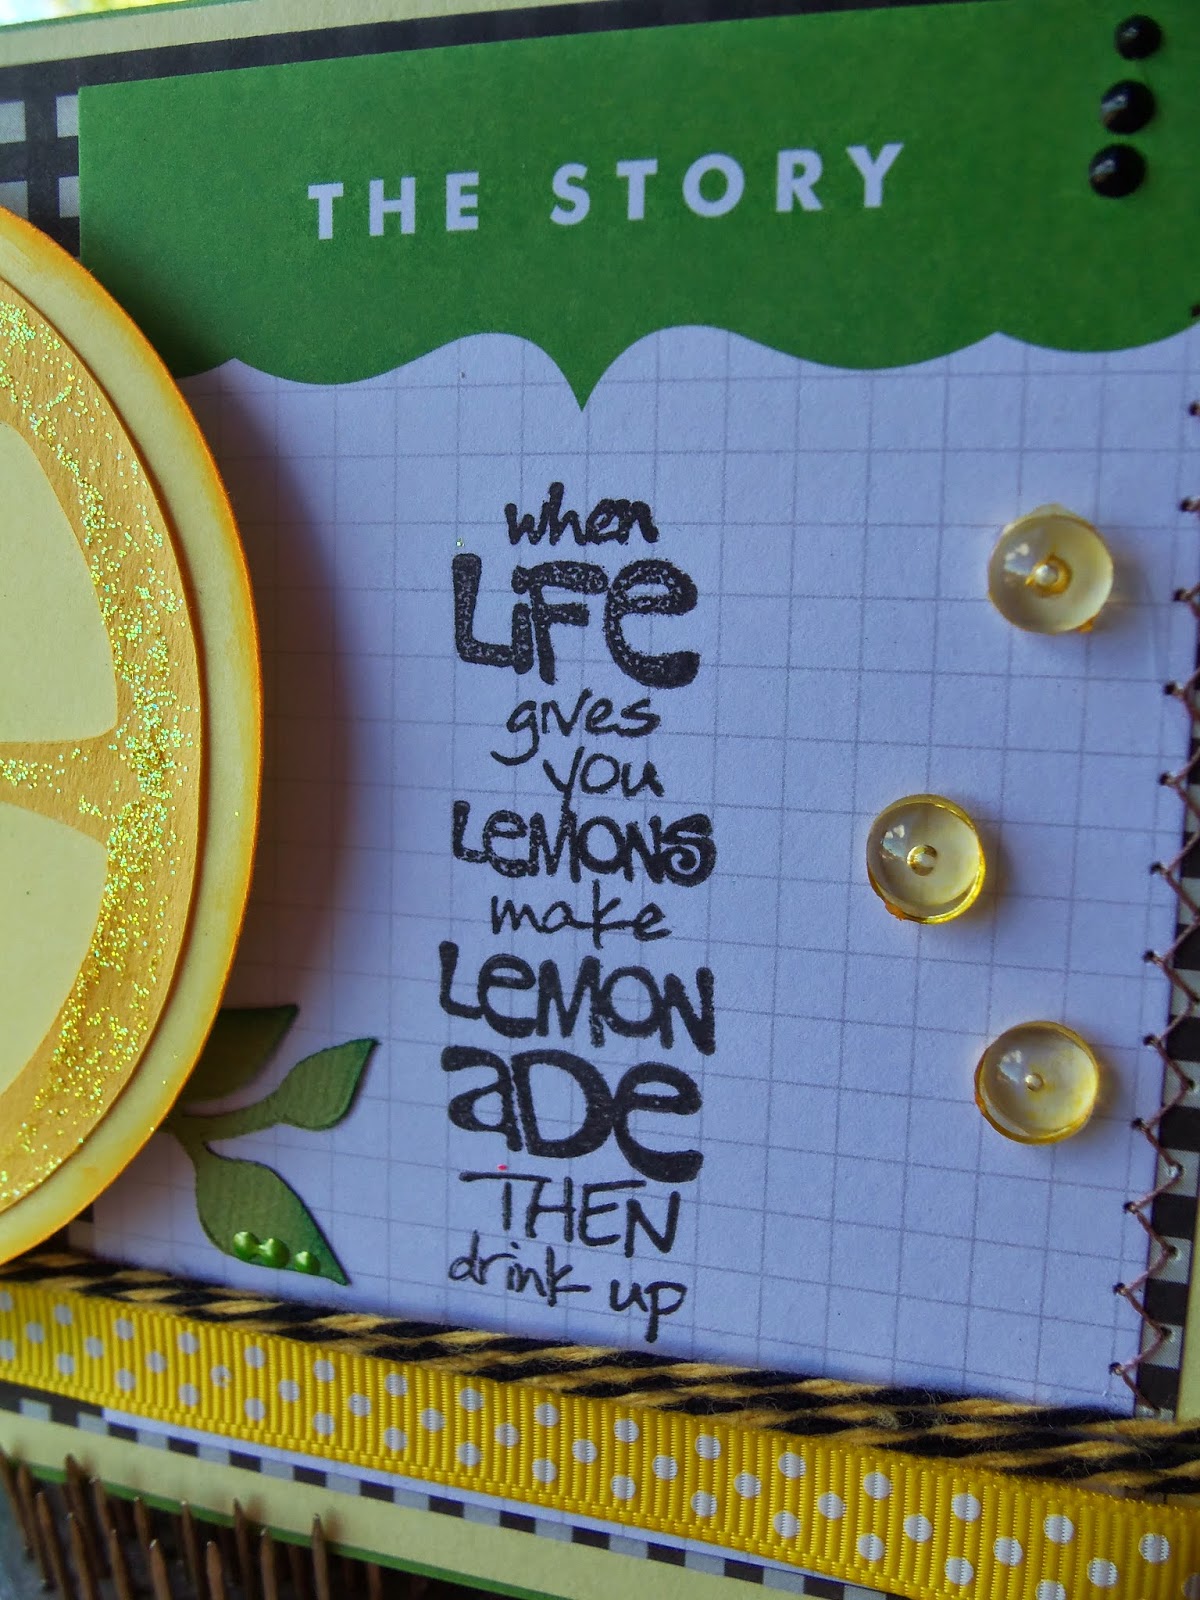 THE STORY
when
LiFe
gives
you
LeMONS
make
LeMON
aDe
THEN
drink up